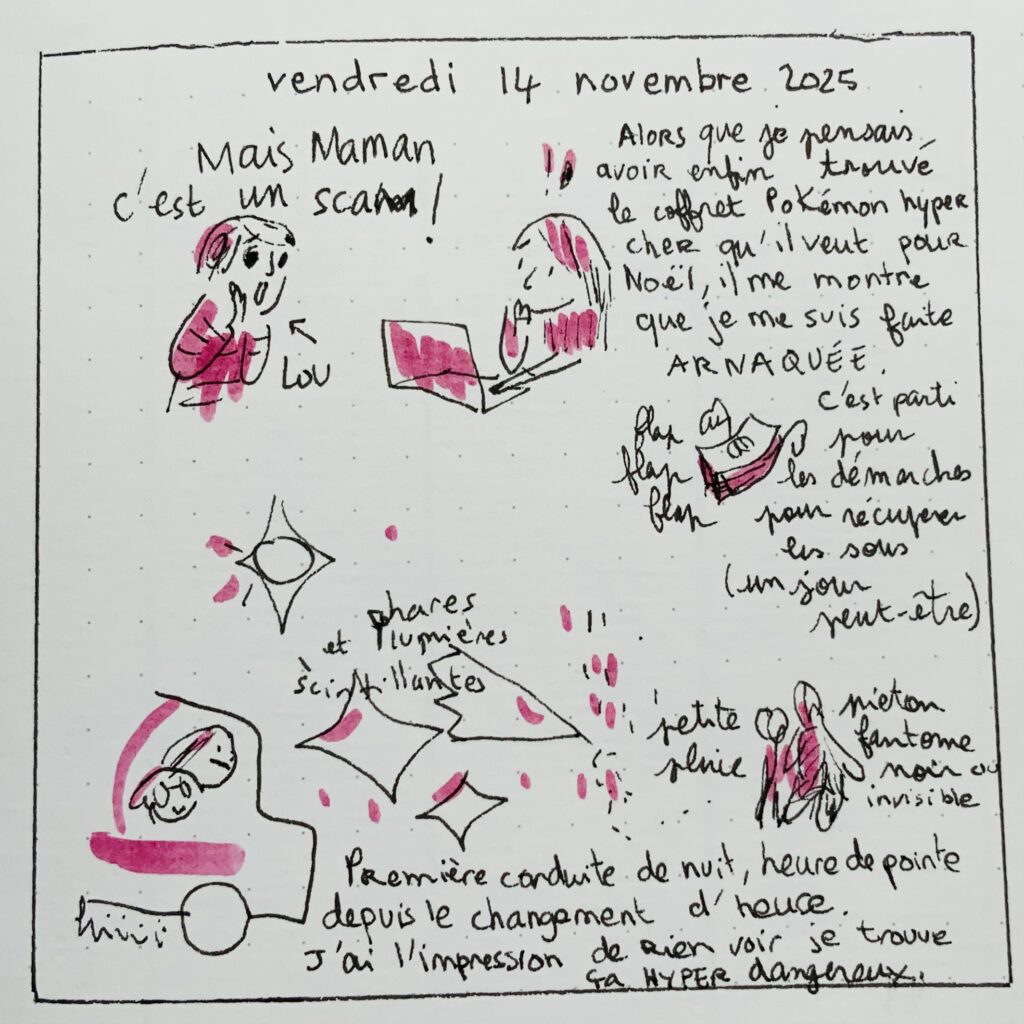 vendredi 14 novembre 2025
Mais Maman
c'est un scam !
Lou
!!
Alors que je pensais
avoir enfin trouvé
le coffret Pokémon hyper
cher qu'il veut pour
Noël, il me montre
que je me suis faite
ARNAQUÉE.
flap
flap
flap
c'est parti
pour
les démarches
pour récupérer
les sous
(un jour
peut-être)
phares
et lumières
scintillantes
petite
pluie
piéton
fantome
noir ou
invisible
hiiiii
Première conduite de nuit, heure de pointe
depuis le changement d'heure.
J'ai l'impression de rien voir je trouve
ça HYPER dangereux.